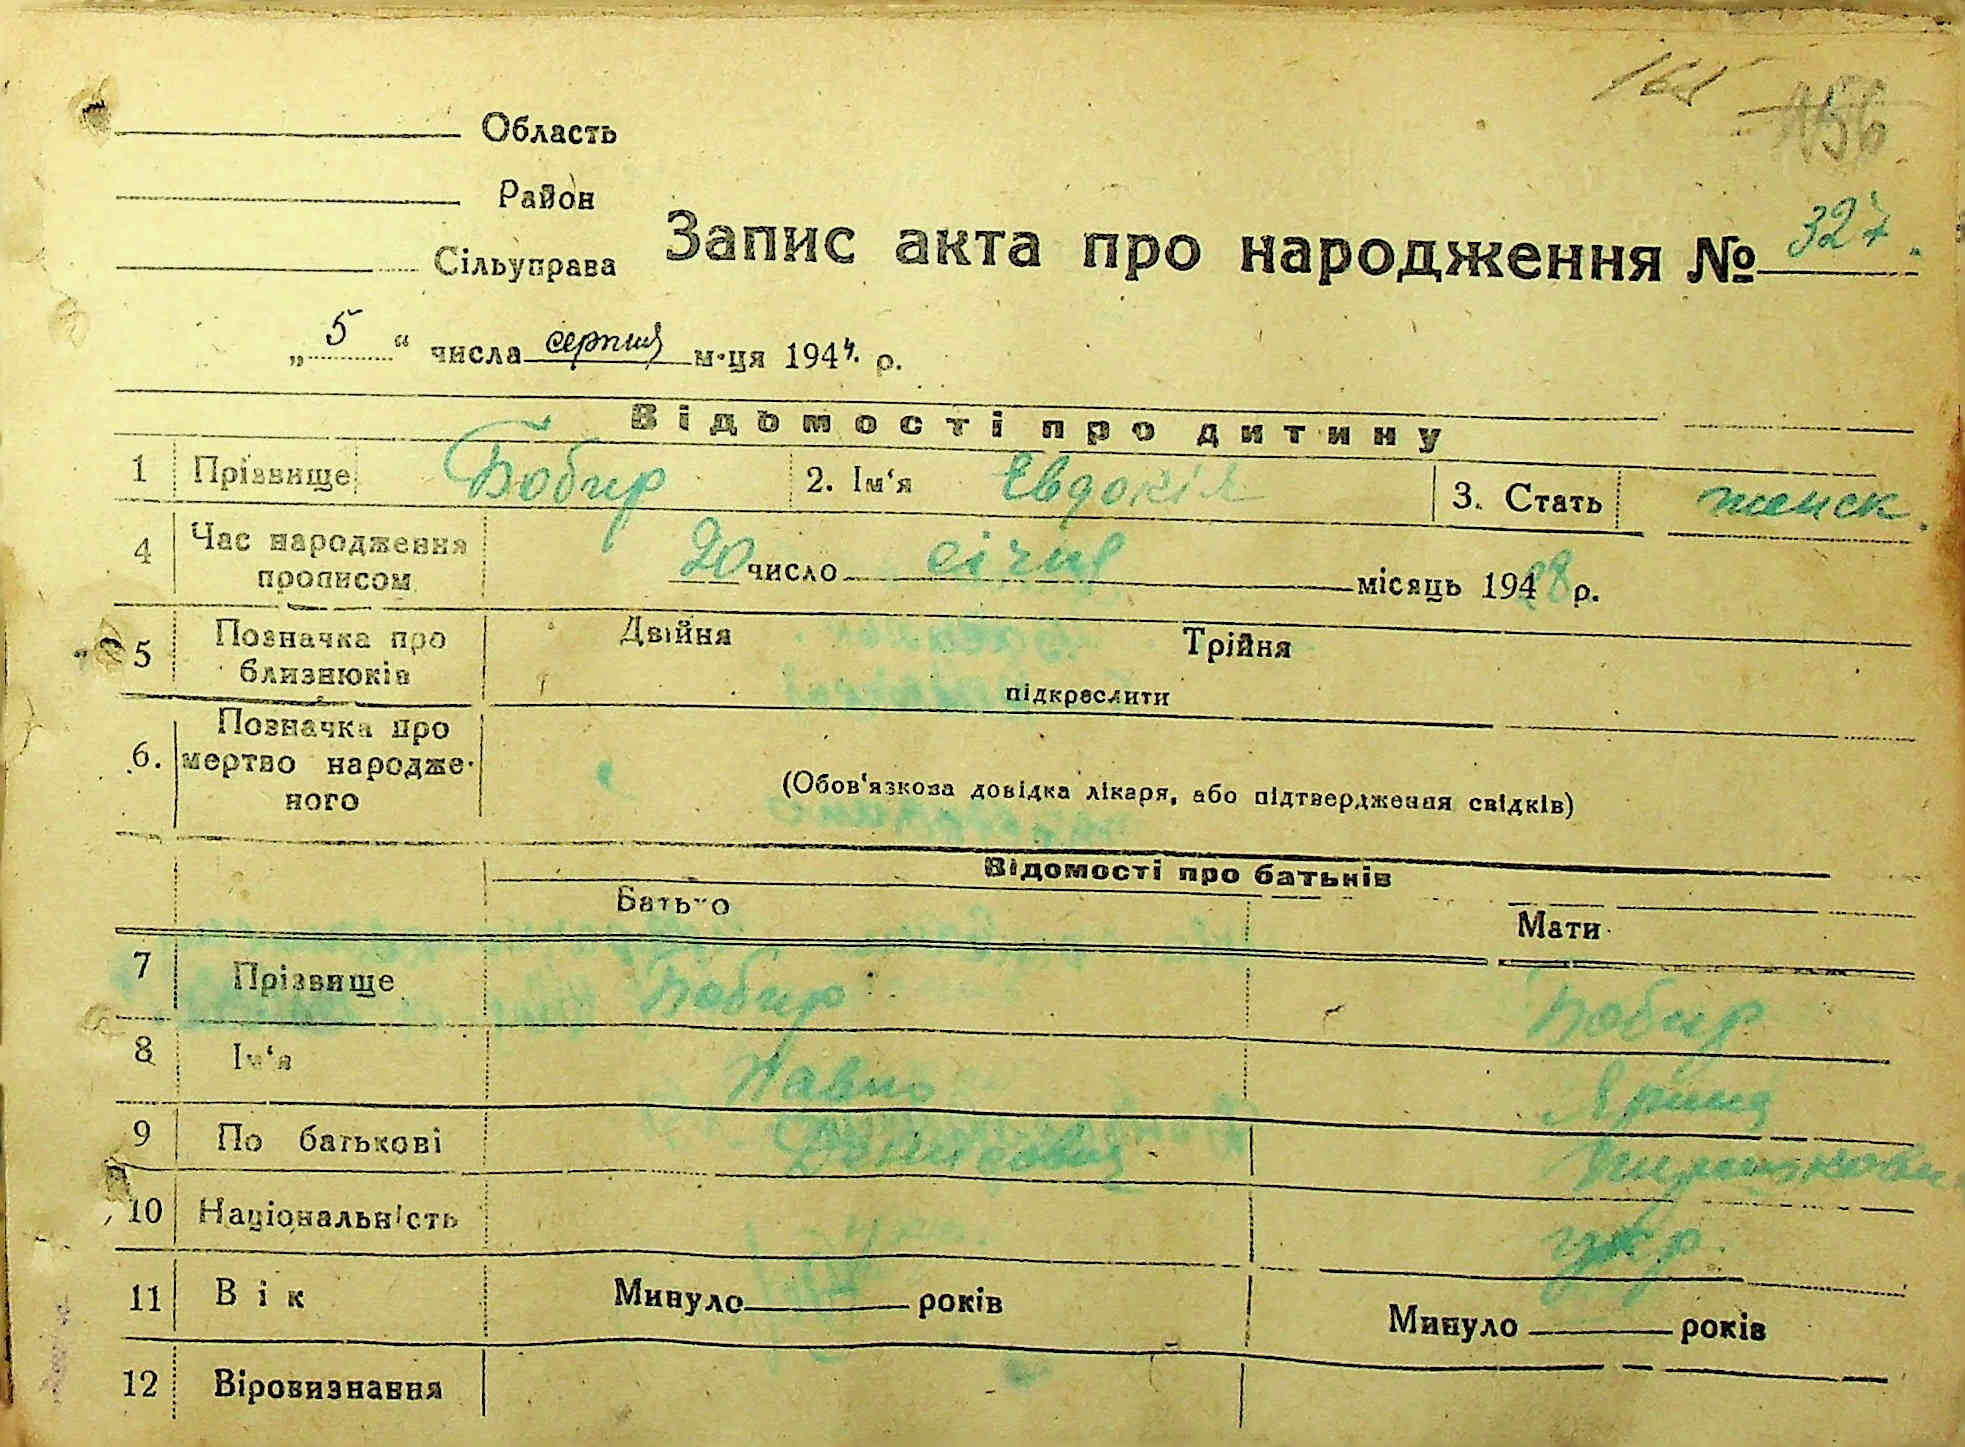 165 156
Область
Район
Сільуправа
Запис акта про народження № 327.
„5“ числа серпня м-ця 1944. р.
Відомості про дитину
1 Прізвище Бобир 2. Ім‘я Евдокія 3. Стать женск.
4 Час народження прописом 20 число січня місяць 1928 р.
5 Позначка про близнюків Двійня Трійня
підкреслити
6. Позначка про мертво народже-ного (Обов‘язкова довідка лікаря, або підтвердження свідків)
Відомості про батьків
Батько Мати
7 Прізвище Бобир Бобир
8 Ім‘я Павло Ярина
9 По батькові Денисович
10 Національність укр.
11 Вік Минуло років Минуло років
12 Віровизнання